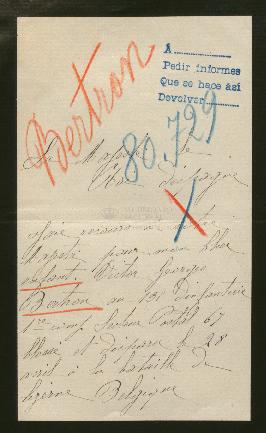 A
Pedir informes
Que se hace así
Devolver
Bertron
80.729
Sa Majesté le
Roi d'Espagne
votre
Majesté pour mon cher
enfant. Victor Georges
Bertron au 131 d'infanterie
1re comp Secteur Postal 67
blessé et disparu le 28
avril à la bataille de
Belgique